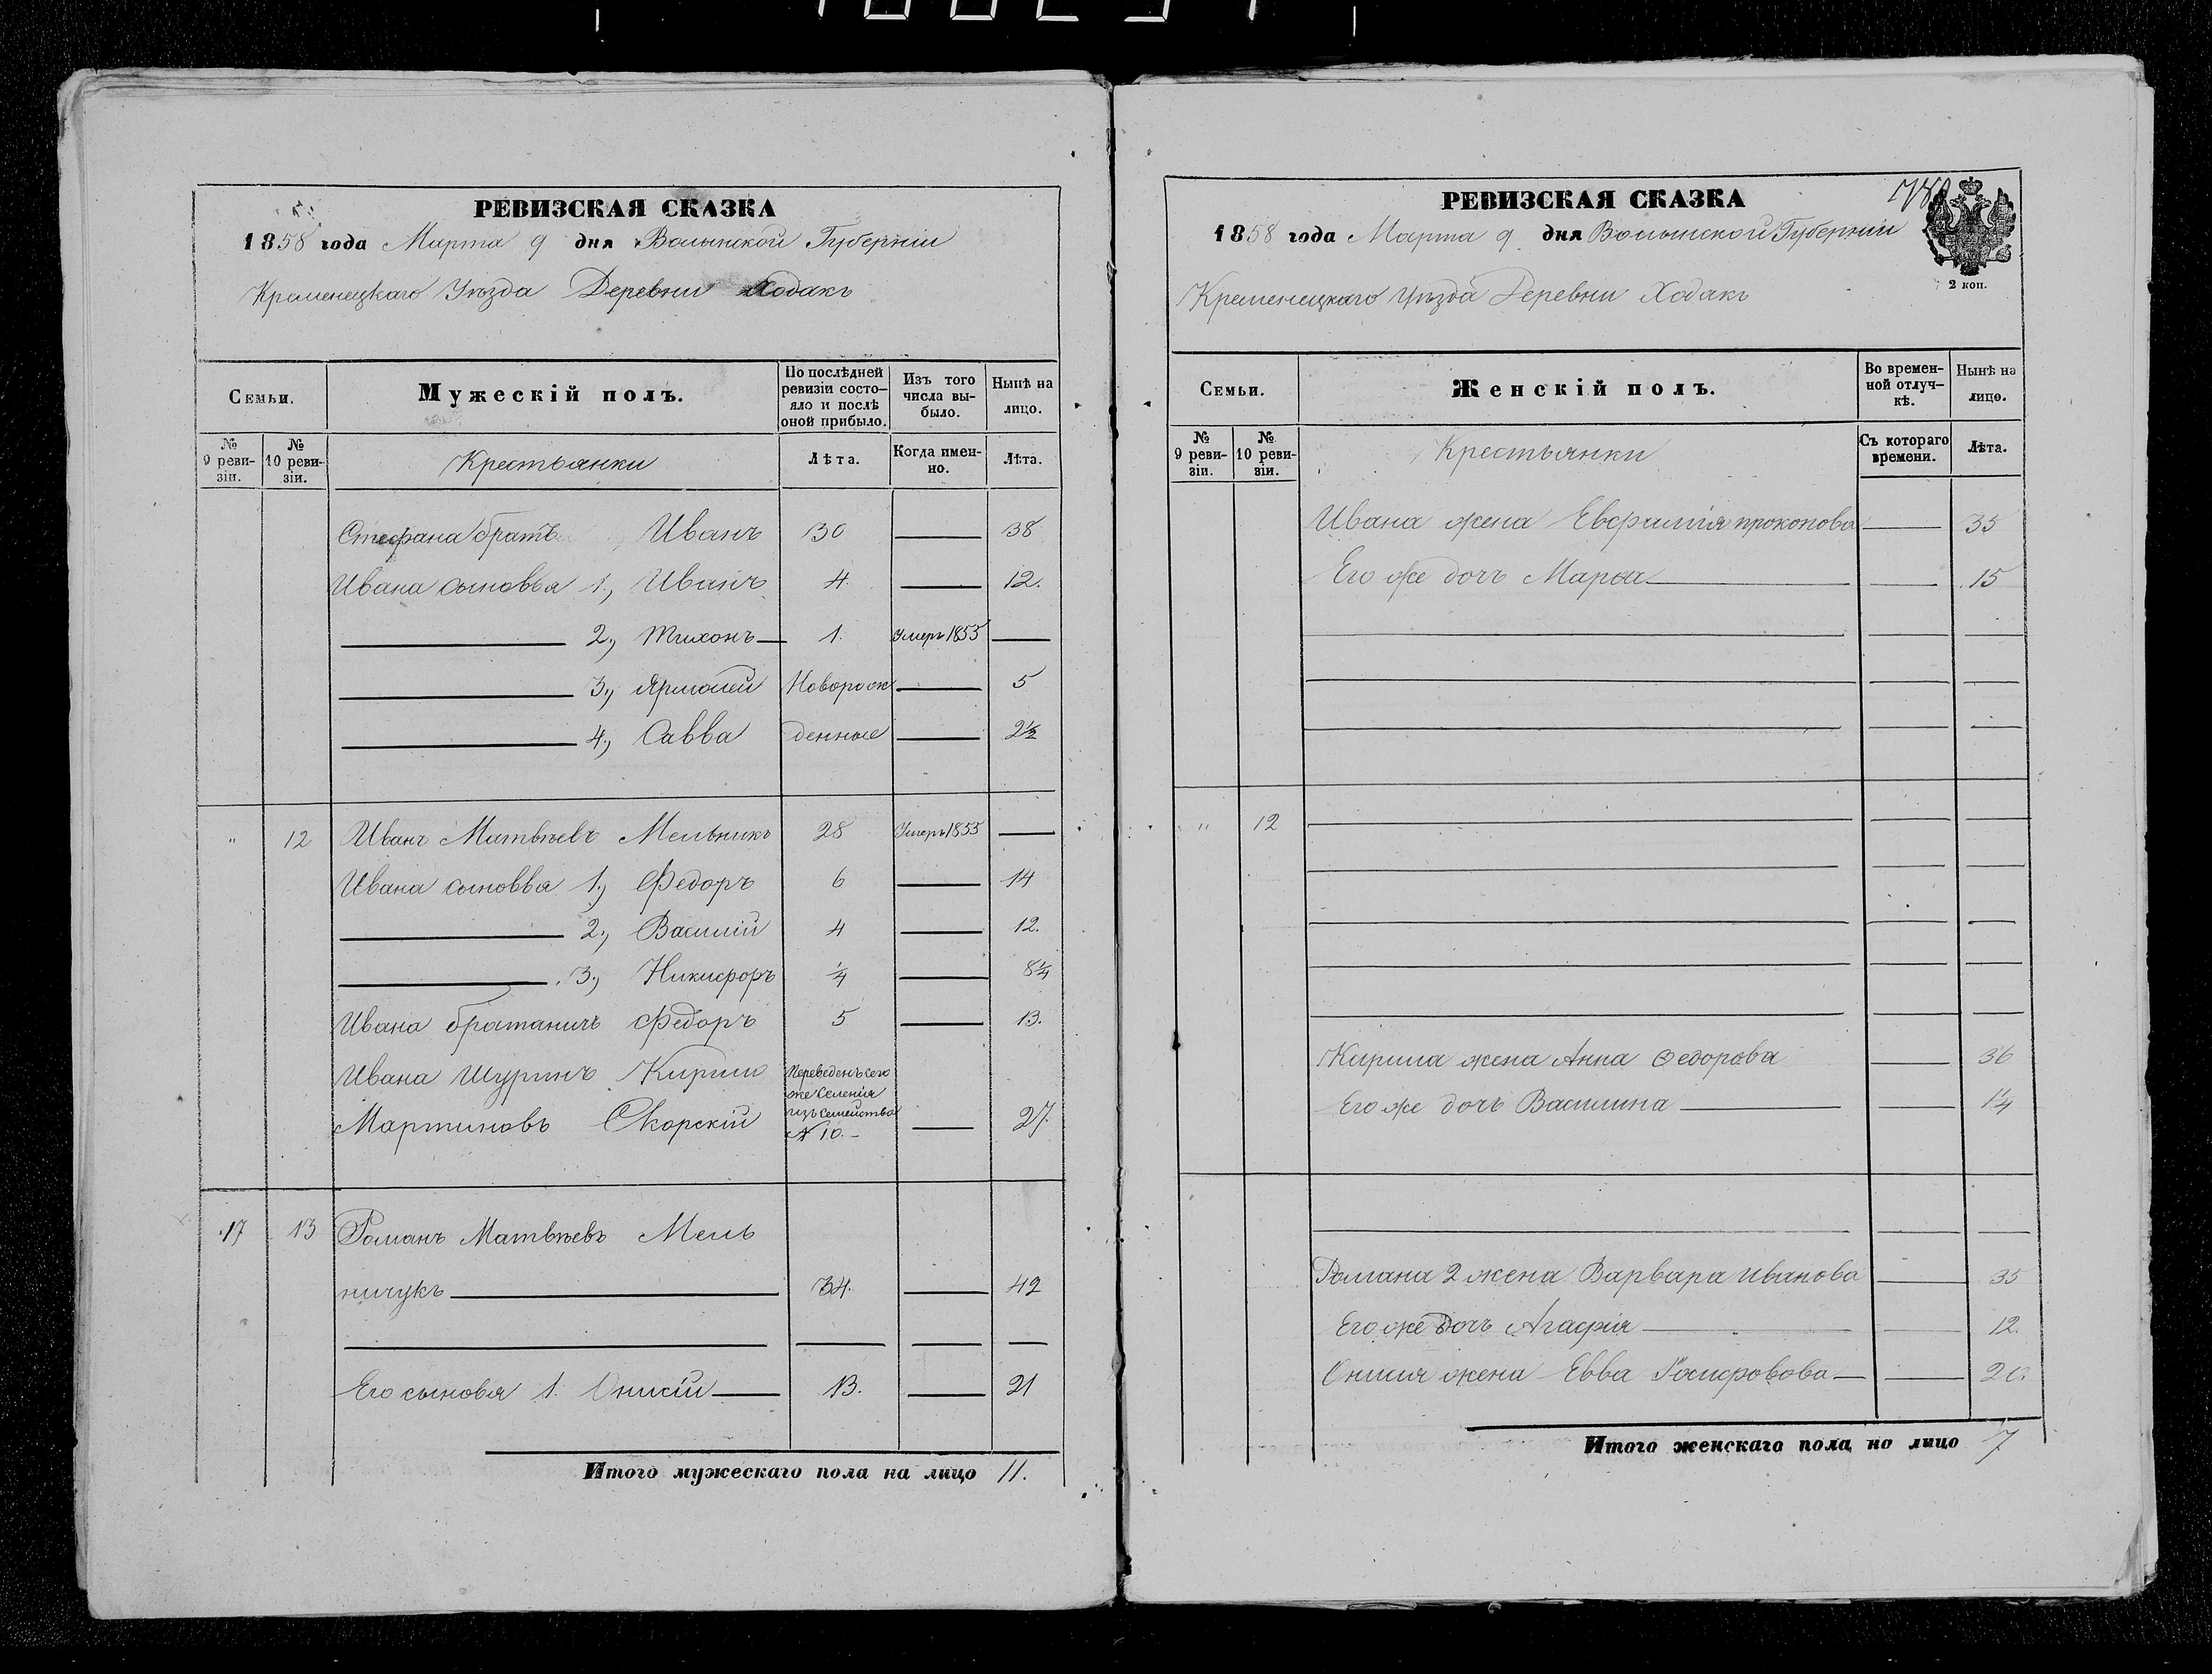 РЕВИЗСКАЯ СКАЗКА
1858 года Марта 9 дня Волынской Губерніи
Кременецкаго Уѣзда Деревни Ходакъ
Семьи.
Мужескій полъ.
По послѣдней ревизіи состояло и послѣ оной прибыло.
Изъ того числа выбыло.
Нынѣ на лицо.
№ 9 ревизіи.
№ 10 ревизіи.
Крестьянки
Лѣта.
Когда именно.
Лѣта.
Стефана братъ Иванъ 30 — 38
Ивана сыновья 1., Иванъ 4. — 12.
— 2., Тихонъ — 1. Умеръ 1855 —
— 3., ЯрмолейНоворож — 5
— 4., Савва денные — 2½
" 12 Иванъ Матвѣевъ Мельникъ 28 Умеръ 1855 —
Ивана сыновья 1., Федоръ 6 — 14
— 2., Василій 4 — 12.
— 3., Никифоръ ¼ — 8¼
Ивана братаничъ Федоръ 5 — 13.
Ивана Шуринъ Кирило Переведенъ сего
же Селенія
изъ семейства
Мартиновъ Скорскій № 10.– — 27.
17 13 Романъ Матвѣевъ Мель
ничукъ — 34. — 42
— — — —
Его сыновья 1. Онисій — 13. — 21
Итого мужескаго пола на лицо 11.
РЕВИЗСКАЯ СКАЗКА
1858 года Марта 9 дня Волынской Губерніи
Кременецкаго Уѣзда Деревни Ходакъ
2 коп.
Семьи.
Женскій полъ.
Во временной отлучкѣ.
Нынѣ на лицо.
№ 9 ревизіи.
№ 10 ревизіи.
Крестьянки
Съ котораго времени.
Лѣта.
Ивана жена Евфимія прокопова — 35
Его же дочь Марья — — 15
" 12
Кирила жена Анна Федорова — 36
Его же дочь Василина — — 1¼
Романа 2 жена Варвара Иванова — 35
Его же дочь Агафія — — 12.
Онисія жена Евва — — 20.
Итого женскаго пола но лицо 7